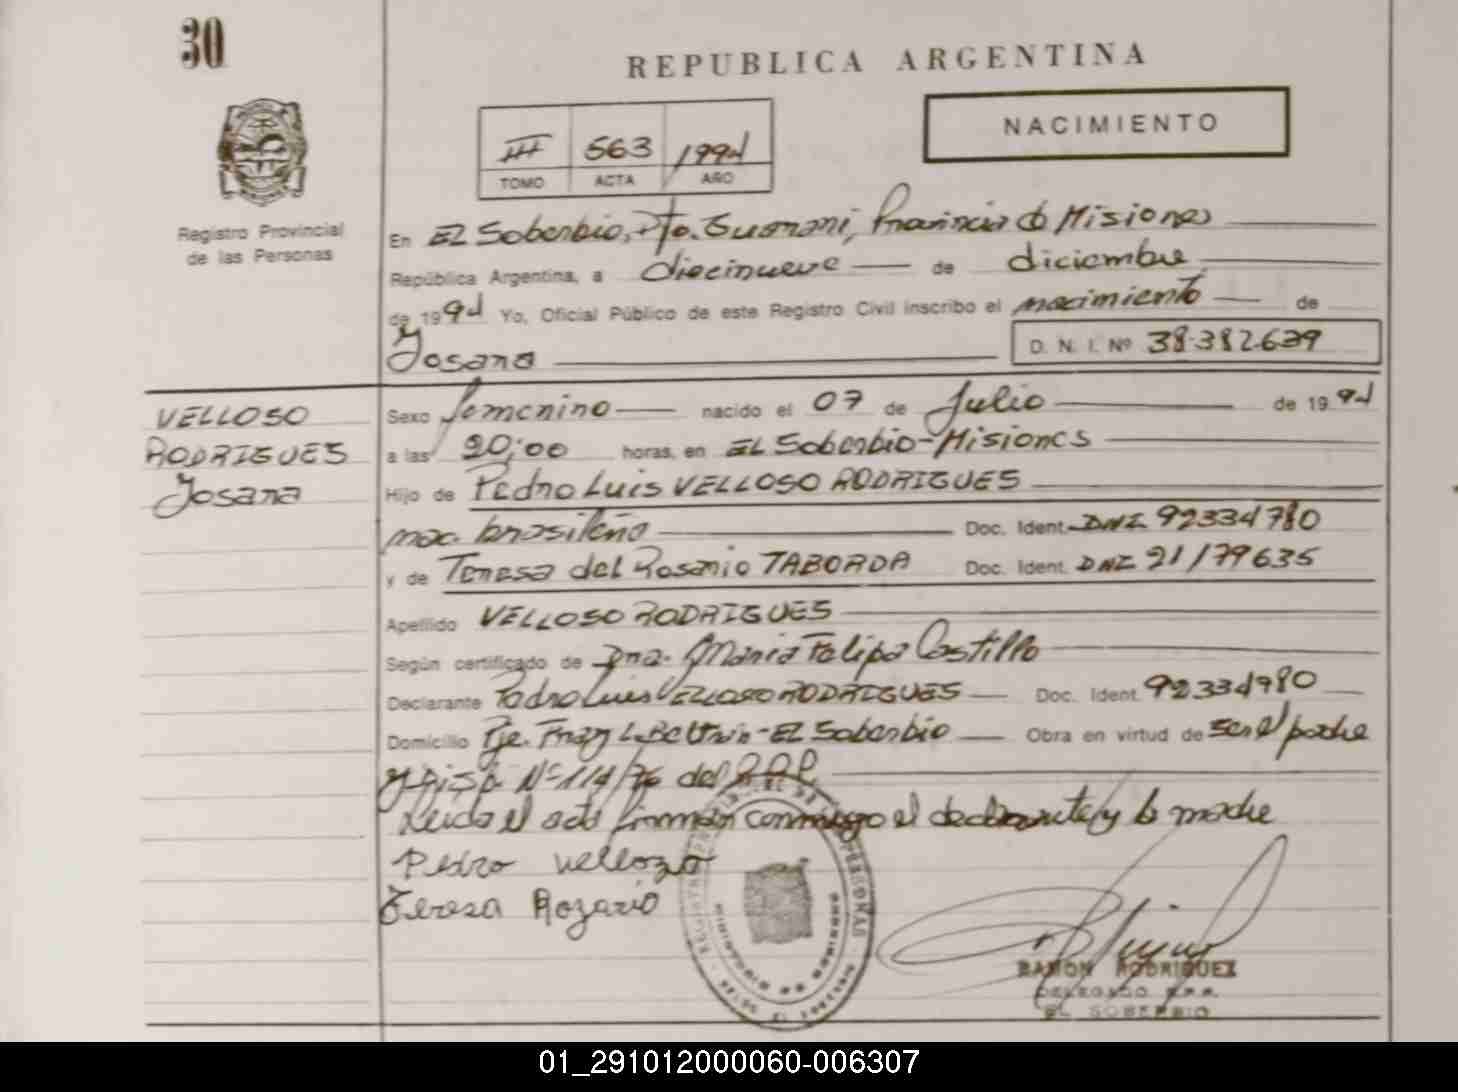 30
REPUBLICA ARGENTINA
NACIMIENTO
III 563 1994
TOMO ACTA AÑO
Registro Provincial
de las Personas
En EL Soberbio, Pto. Guarani, Provincia de Misiones
República Argentina, a diecinueve de diciembre
de 1994 Yo, Oficial Público de este Registro Civil inscribo el nacimiento de
Josana
D. N. I. Nº 38.382.639
VELLOSO
RODRIGUES
Josana
Sexo femenino nacido el 07 de Julio de 1994
a las 20:00 horas, en EL Soberbio-Misiones
Hijo de Pedro Luis VELLOSO RODRIGUES
nac. brasileño Doc. Ident. DNI 92334780
y de Teresa del Rosario TABORDA Doc. Ident. DNI 21179635
Apellido VELLOSO RODRIGUES
Según certificado de Dna. Maria Felipa Castillo
Declarante Pedro Luis VELLOSO RODRIGUES Doc. Ident. 92334980
Domicilio Pje. Fray L. Beltrán-EL Soberbio Obra en virtud de ser el padre
y Disp. Nº 114/76 del R.P.P.
Leida el acta firman conmigo el declarante y la madre
Pedro Vellozo
Teresa Rozario
RAMON RODRIGUEZ
DELEGADO R.P.P.
EL SOBERBIO
01_291012000060-006307